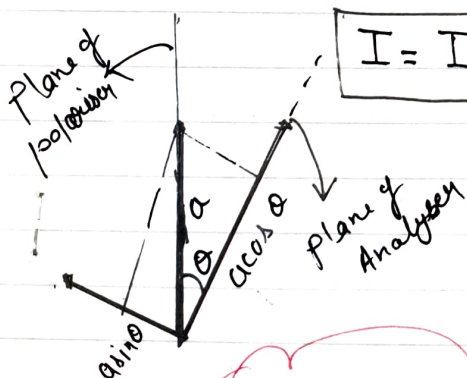 Plane of
polariser
I = I
a
θ
acos θ
Plane of
Analyser
asinθ